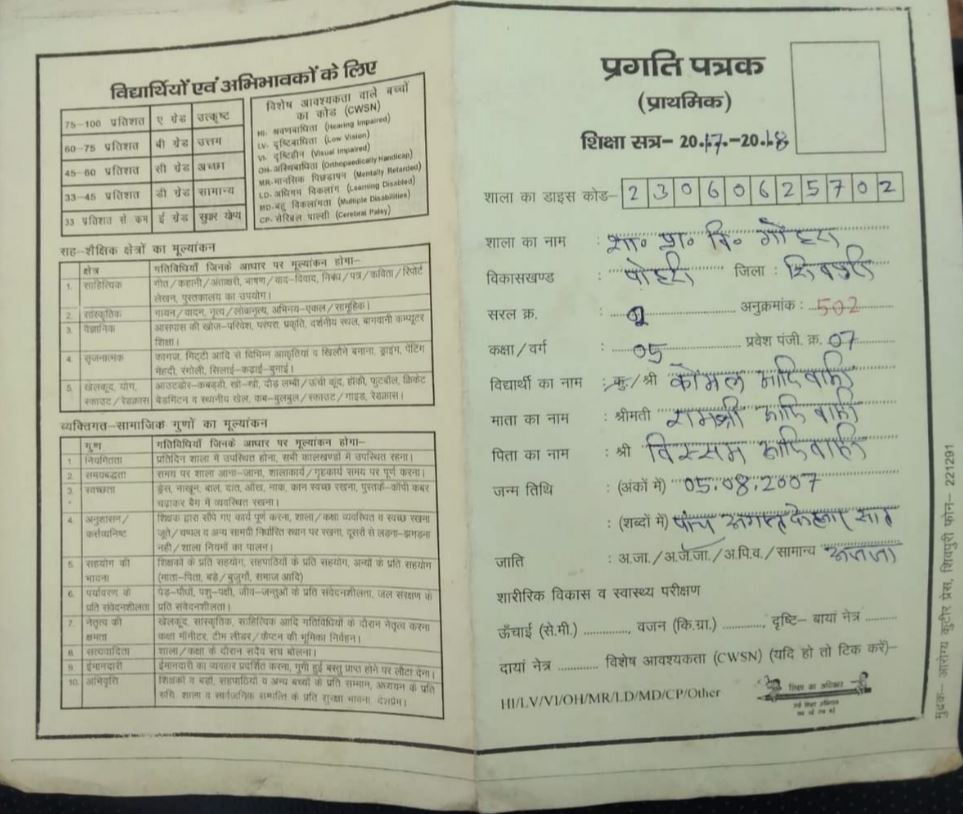 विद्यार्थियों एवं अभिभावकों के लिए
75-100 प्रतिशत ए ग्रेड उत्कृष्ट
60-75 प्रतिशत बी ग्रेड उत्तम
45-60 प्रतिशत सी ग्रेड अच्छा
33-45 प्रतिशत डी ग्रेड सामान्य
33 प्रतिशत से कम ई ग्रेड सुधार योग्य
विशेष आवश्यकता वाले बच्चों
का कोड (CWSN)
HI- श्रवणबाधिता (Hearing Impaired)
LV- दृष्टिबाधिता (Low Vision)
VI- दृष्टिहीन (Visual Impaired)
OH- अस्थिबाधिता (Orthopaedically Handicap)
MR-मानसिक पिछड़ापन (Mentally Retarded)
LD- अधिगम विकलांग (Learning Disabled)
MD-बहु विकलांगता (Multiple Disabilities)
CP- सेरिब्रल पाल्सी (Cerebral Palsy)
सह-शैक्षिक क्षेत्रों का मूल्यांकन
क्षेत्र गतिविधियाँ जिनके आधार पर मूल्यांकन होगा-
1. साहित्यिक गीत/कहानी/अंताक्षरी, भाषण/वाद-विवाद, निबंध/पत्र/कविता/रिपोर्ट
लेखन, पुस्तकालय का उपयोग।
2. सांस्कृतिक गायन/वादन, नृत्य/लोकनृत्य, अभिनय-एकल/सामूहिक।
3. वैज्ञानिक आसपास की खोज-परिवेश, परंपरा, प्रकृति, दर्शनीय स्थल, बागवानी कम्प्यूटर
शिक्षा।
4. सृजनात्मक कागज, मिट्टी आदि से विभिन्न आकृतियां व खिलौने बनाना, ड्राइंग, पेंटिंग
मेहंदी, रंगोली, सिलाई-कढ़ाई-बुनाई।
5. खेलकूद, योग, आउटडोर-कबड्डी, खो-खो, दौड़ लम्बी/ऊंची कूद, हॉकी, फुटबॉल, क्रिकेट
स्काउट/रेडक्रास बेडमिंटन व स्थानीय खेल, कब-बुलबुल/स्काउट/गाइड, रेडक्रास।
व्यक्तिगत-सामाजिक गुणों का मूल्यांकन
गुण गतिविधियाँ जिनके आधार पर मूल्यांकन होगा-
1. नियमितता प्रतिदिन शाला में उपस्थित होना, सभी कालखण्डों में उपस्थित रहना।
2. समयबद्धता समय पर शाला आना-जाना, शालाकार्य/गृहकार्य समय पर पूर्ण करना।
3. स्वच्छता ड्रेस, नाखून, बाल, दांत, आँख, नाक, कान स्वच्छ रखना, पुस्तकें-कॉपी कवर
चढ़ाकर बैग में व्यवस्थित रखना।
4. अनुशासन/ शिक्षक द्वारा सौंपे गए कार्य पूर्ण करना, शाला/कक्षा व्यवस्थित व स्वच्छ रखना
कर्त्तव्यनिष्ट जूते/चप्पल व अन्य सामग्री निर्धारित स्थान पर रखना, दूसरों से लड़ना-झगड़ना
नहीं/शाला नियमों का पालन।
5. सहयोग की शिक्षकों के प्रति सहयोग, सहपाठियों के प्रति सहयोग, अन्यों के प्रति सहयोग
भावना (माता-पिता, बड़े/बुजुर्गों, समाज आदि)
6. पर्यावरण के पेड़-पौधों, पशु-पक्षी, जीव-जन्तुओं के प्रति संवेदनशीलता, जल संरक्षण के
प्रति संवेदनशीलता प्रति संवेदनशीलता।
7. नेतृत्व की खेलकूद, सांस्कृतिक, साहित्यिक आदि गतिविधियों के दौरान नेतृत्व करना
क्षमता कक्षा मॉनीटर, टीम लीडर/कैप्टन की भूमिका निर्वहन।
8. सत्यवादिता शाला/कक्षा के दौरान सदैव सच बोलना।
9. ईमानदारी ईमानदारी का व्यवहार प्रदर्शित करना, गुमी हुई वस्तु प्राप्त होने पर लौटा देना।
10. अभिवृत्ति शिक्षकों व बड़ों, सहपाठियों व अन्य बच्चों के प्रति सम्मान, अध्ययन के प्रति
रूचि, शाला व सार्वजनिक सम्पत्ति के प्रति सुरक्षा भावना, देशप्रेम।
प्रगति पत्रक
(प्राथमिक)
शिक्षा सत्र- 2017-2018
शाला का डाइस कोड- 23060625702
शाला का नाम : शा. प्रा. वि. गोहरा
विकासखण्ड : पोहरी जिला : शिवपुरी
सरल क्र. : अनुक्रमांक : 502
कक्षा/वर्ग : 05 प्रवेश पंजी. क्र. 07
विद्यार्थी का नाम : कु./श्री कोमल आदिवासी
माता का नाम : श्रीमती रामश्री आदिवासी
पिता का नाम : श्री विस्सम आदिवासी
जन्म तिथि : (अंकों में) 05.08.2007
: (शब्दों में) पांच अगस्त दो हजार सात
जाति : अ.जा./अ.ज.जा./अ.पि.व./सामान्य अ.ज.जा
शारीरिक विकास व स्वास्थ्य परीक्षण
ऊँचाई (से.मी.) ............, वजन (कि.ग्रा.) ............, दृष्टि- बायां नेत्र ........
दायां नेत्र .......... विशेष आवश्यकता (CWSN) (यदि हो तो टिक करें)-
HI/LV/VI/OH/MR/LD/MD/CP/Other
शिक्षा का अधिकार
सर्व शिक्षा अभियान
सब पढ़ें सब बढ़ें
मुद्रक- आरोग्य कुटीर प्रेस, शिवपुरी फोन- 221291